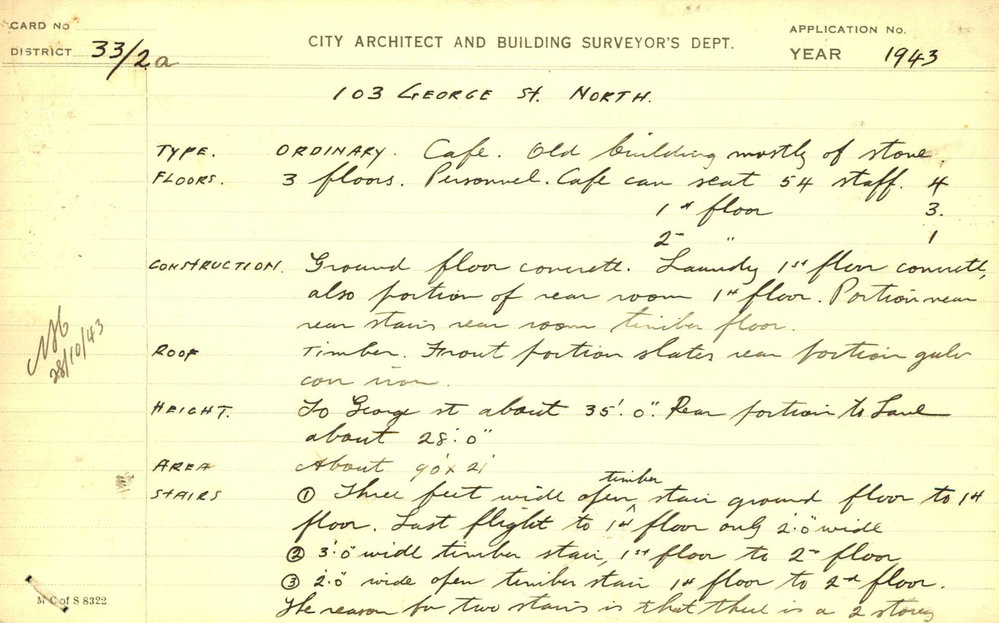 CARD No
DISTRICT 33/2a
CITY ARCHITECT AND BUILDING SURVEYOR'S DEPT.
APPLICATION No.
YEAR 1943
103 GEORGE St. NORTH.
TYPE. ORDINARY. Cafe. Old building mostly of stone.
FLOORS. 3 floors. Personnel. Cafe can seat 54 staff. 4
1st floor 3.
2nd " 1
CONSTRUCTION. Ground floor concrete. Laundry 1st floor concrete,
also portion of rear room 1st floor. Portion near
rear stairs rear room timber floor.
ROOF Timber. Front portion slates rear portion galv
corr iron.
HEIGHT. To George st about 35'.0". Rear portion to Lane
about 28'.0"
AREA About 90' x 21'
STAIRS ① Three feet wide open timber stair ground floor to 1st
floor. Last flight to 1st floor only 2'.0" wide
② 3'.0" wide timber stair, 1st floor to 2nd floor
③ 2'.0" wide open timber stair 1st floor to 2nd floor.
The reason for two stairs is that there is a 2 storey
28/10/43
M C of S 8322